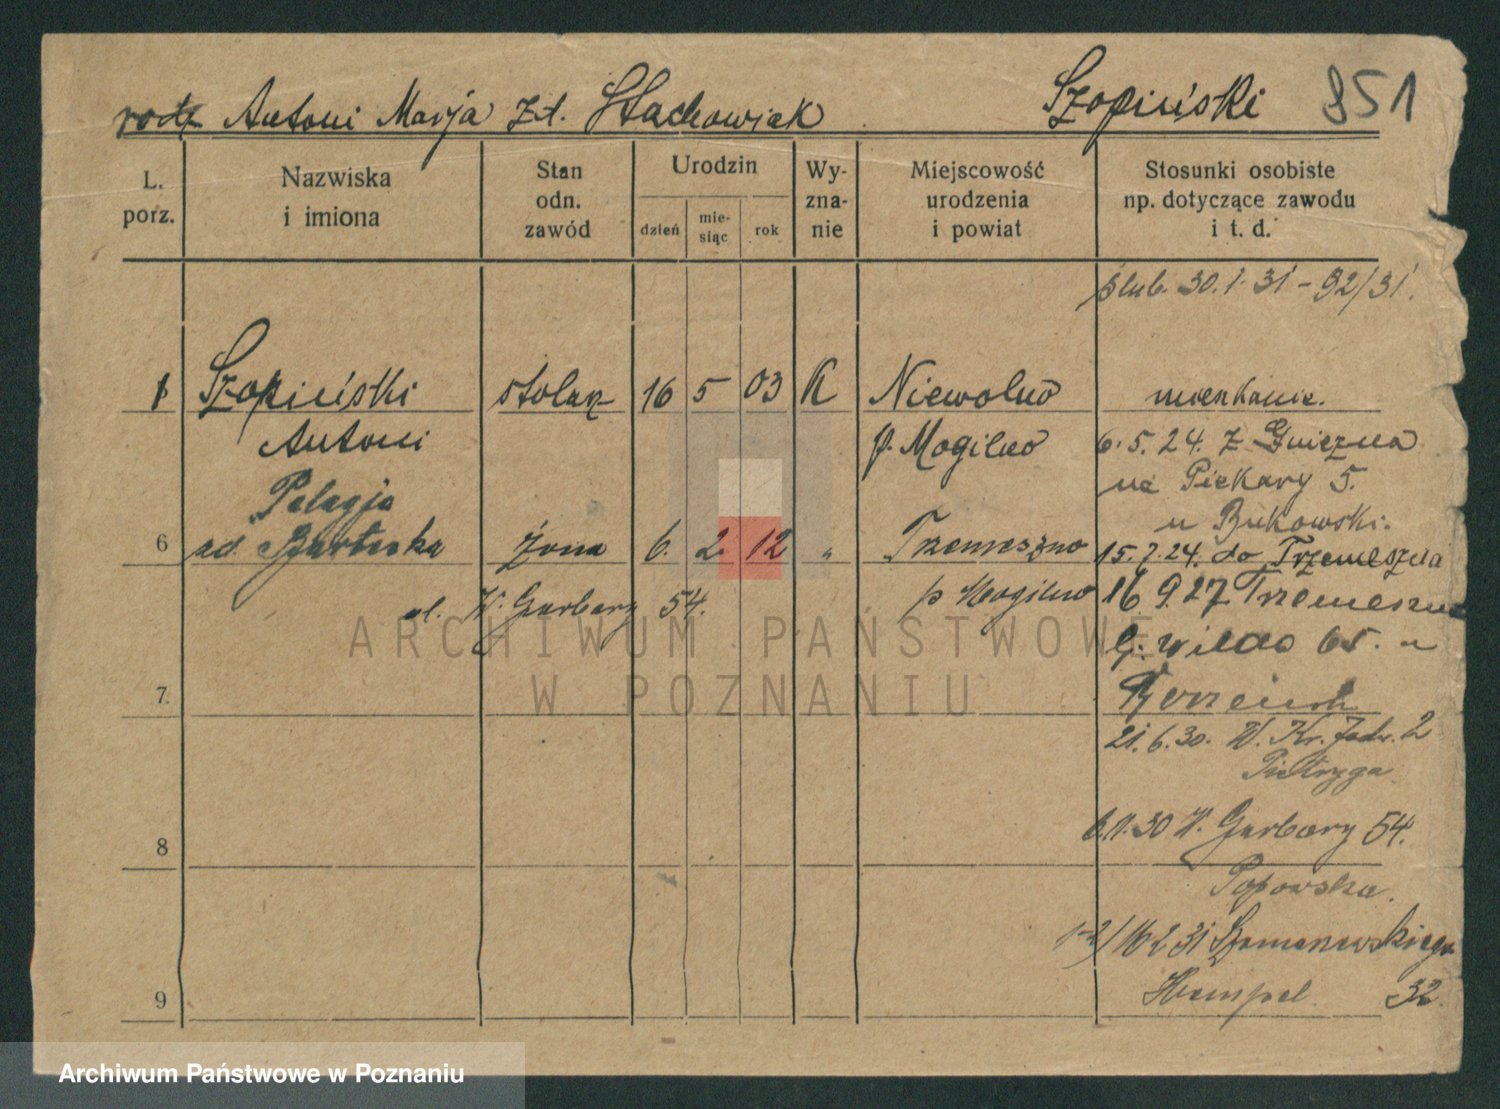 rodz Antoni Marja zd. Stachowiak Szopiński 851
L. porz. Nazwiska i imiona Stan odn. zawód Urodzin dzień mie-siąc rok Wy-zna-nie Miejscowość urodzenia i powiat Stosunki osobiste np. dotyczące zawodu i t. d.
ślub. 30.1.31 - 92/31.
1 Szopiński stolarz 16 5 03 K Niewolno mieszkanie.
Antoni p. Mogilno 6.5.24. z Gniezna
na Piekary 5.
Pelagja u Bukowski.
6 żona 6. 2. 12 " Trzemeszno 15.7.24. do Trzemeszna
ul. W. Garbary 54. p Mogilno 16 9.27 Trzemeszno
G. Wilda 65. u
ARCHIWUM PAŃSTWOWE
W POZNANIU
7.
21.6.30. W. Kr. Jadw. 2
Pietryga
6.11.30 W. Garbary 54.
8
Popowska.
16 2 31 Szamarzewskiego
Hempel 32.
9
Archiwum Państwowe w Poznaniu